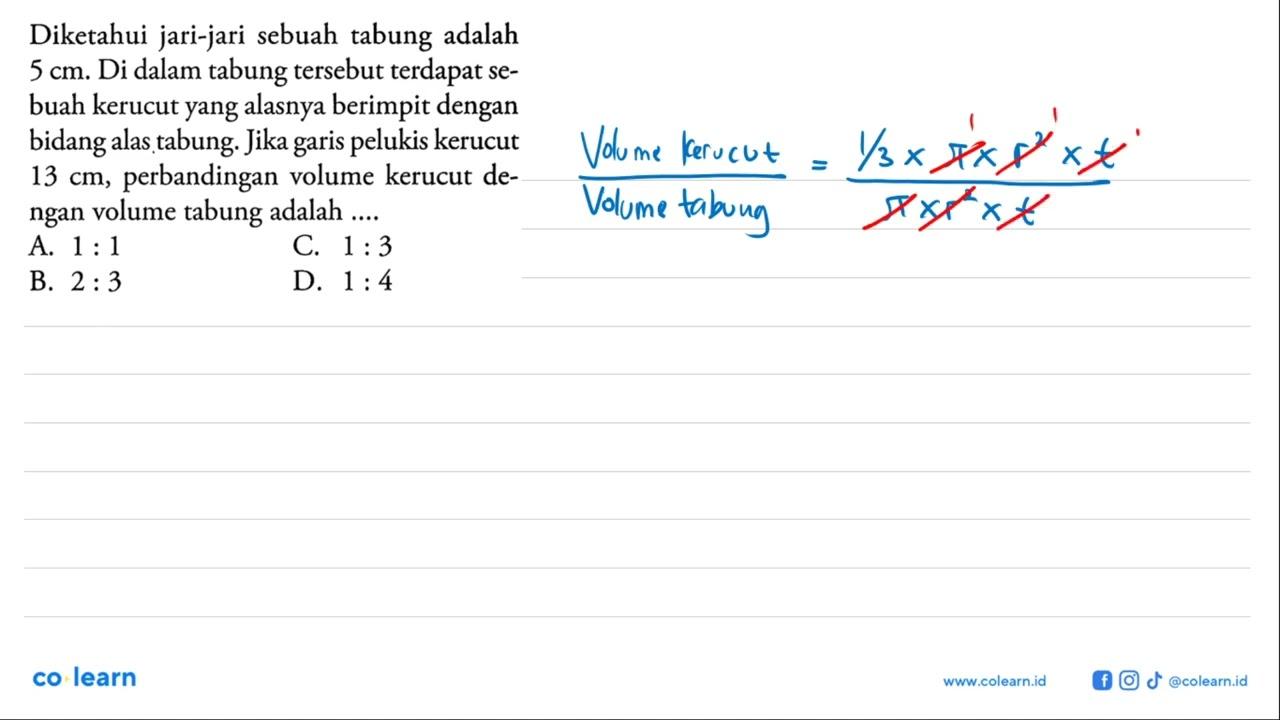 Diketahui jari-jari sebuah tabung adalah
5 cm. Di dalam tabung tersebut terdapat se-
buah kerucut yang alasnya berimpit dengan
bidang alas tabung. Jika garis pelukis kerucut
13 cm, perbandingan volume kerucut de-
ngan volume tabung adalah ....
A. 1 : 1 C. 1 : 3
B. 2 : 3 D. 1 : 4
Volume kerucut = 1/3 x π x r² x t
Volume tabung π x r² x t
1 1 1
co learn
www.colearn.id @colearn.id